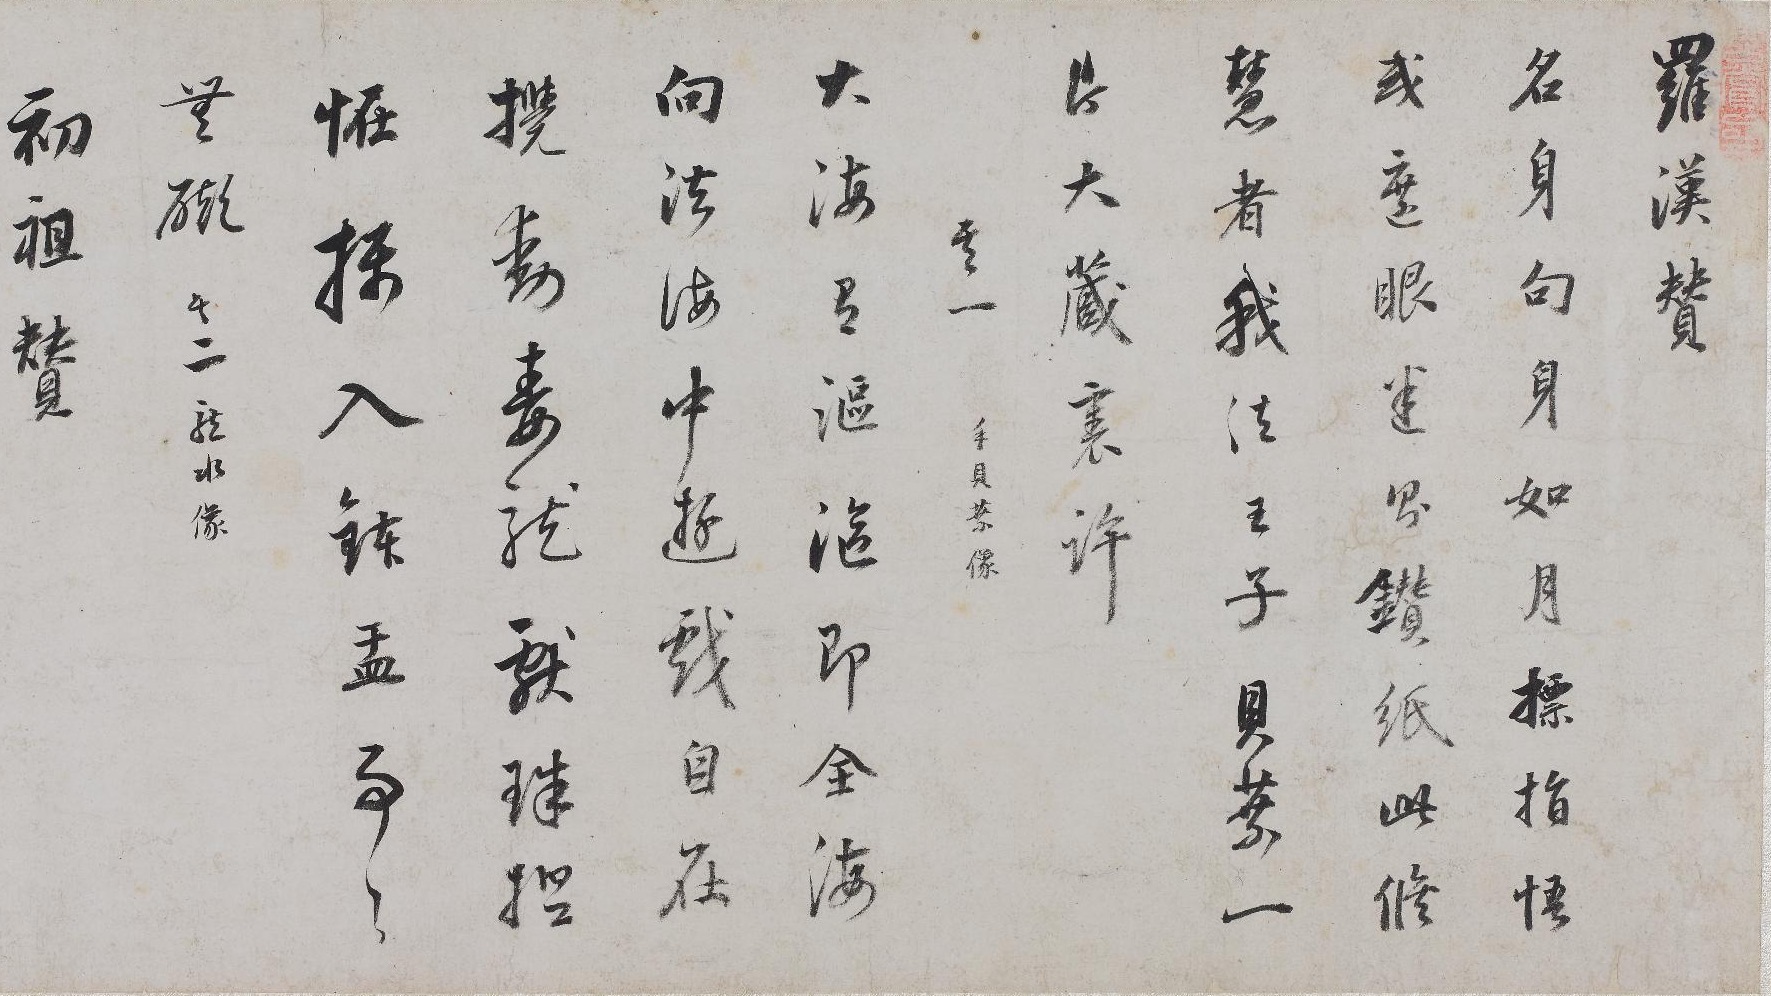 羅漢贊
名身句身如月標指悟
或遮眼迷鑽紙此脩
慧者我法王子貝葉一
片大藏裏許
其一 手貝葉像
大海有漚漚即全海
向法海中遊戲自在
攪動毒龍獻珠捏
怪入鉢盂事〻
無礙 其二 龍水像
初祖贊